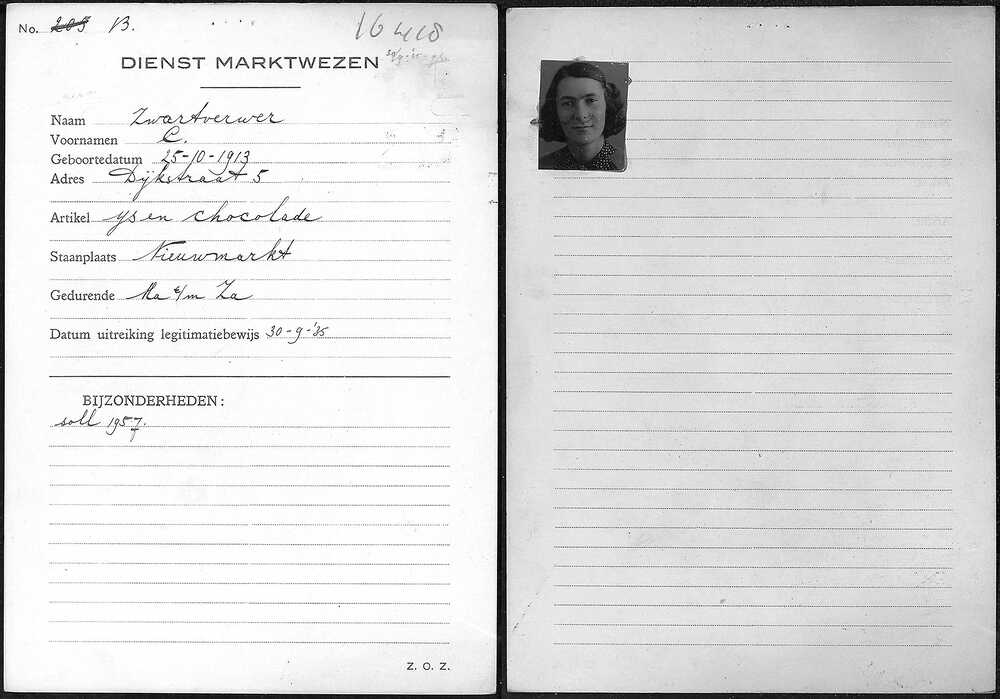 No. 205 B. 16418
DIENST MARKTWEZEN
Naam Zwartverwer
Voornamen C.
Geboortedatum 25-10-1913
Adres Dijkstraat 5
Artikel ys en chocolade
Staanplaats Nieuwmarkt
Gedurende Ma t/m Za
Datum uitreiking legitimatiebewijs 30-9-'35
BIJZONDERHEDEN:
soll 1957.
Z. O. Z.